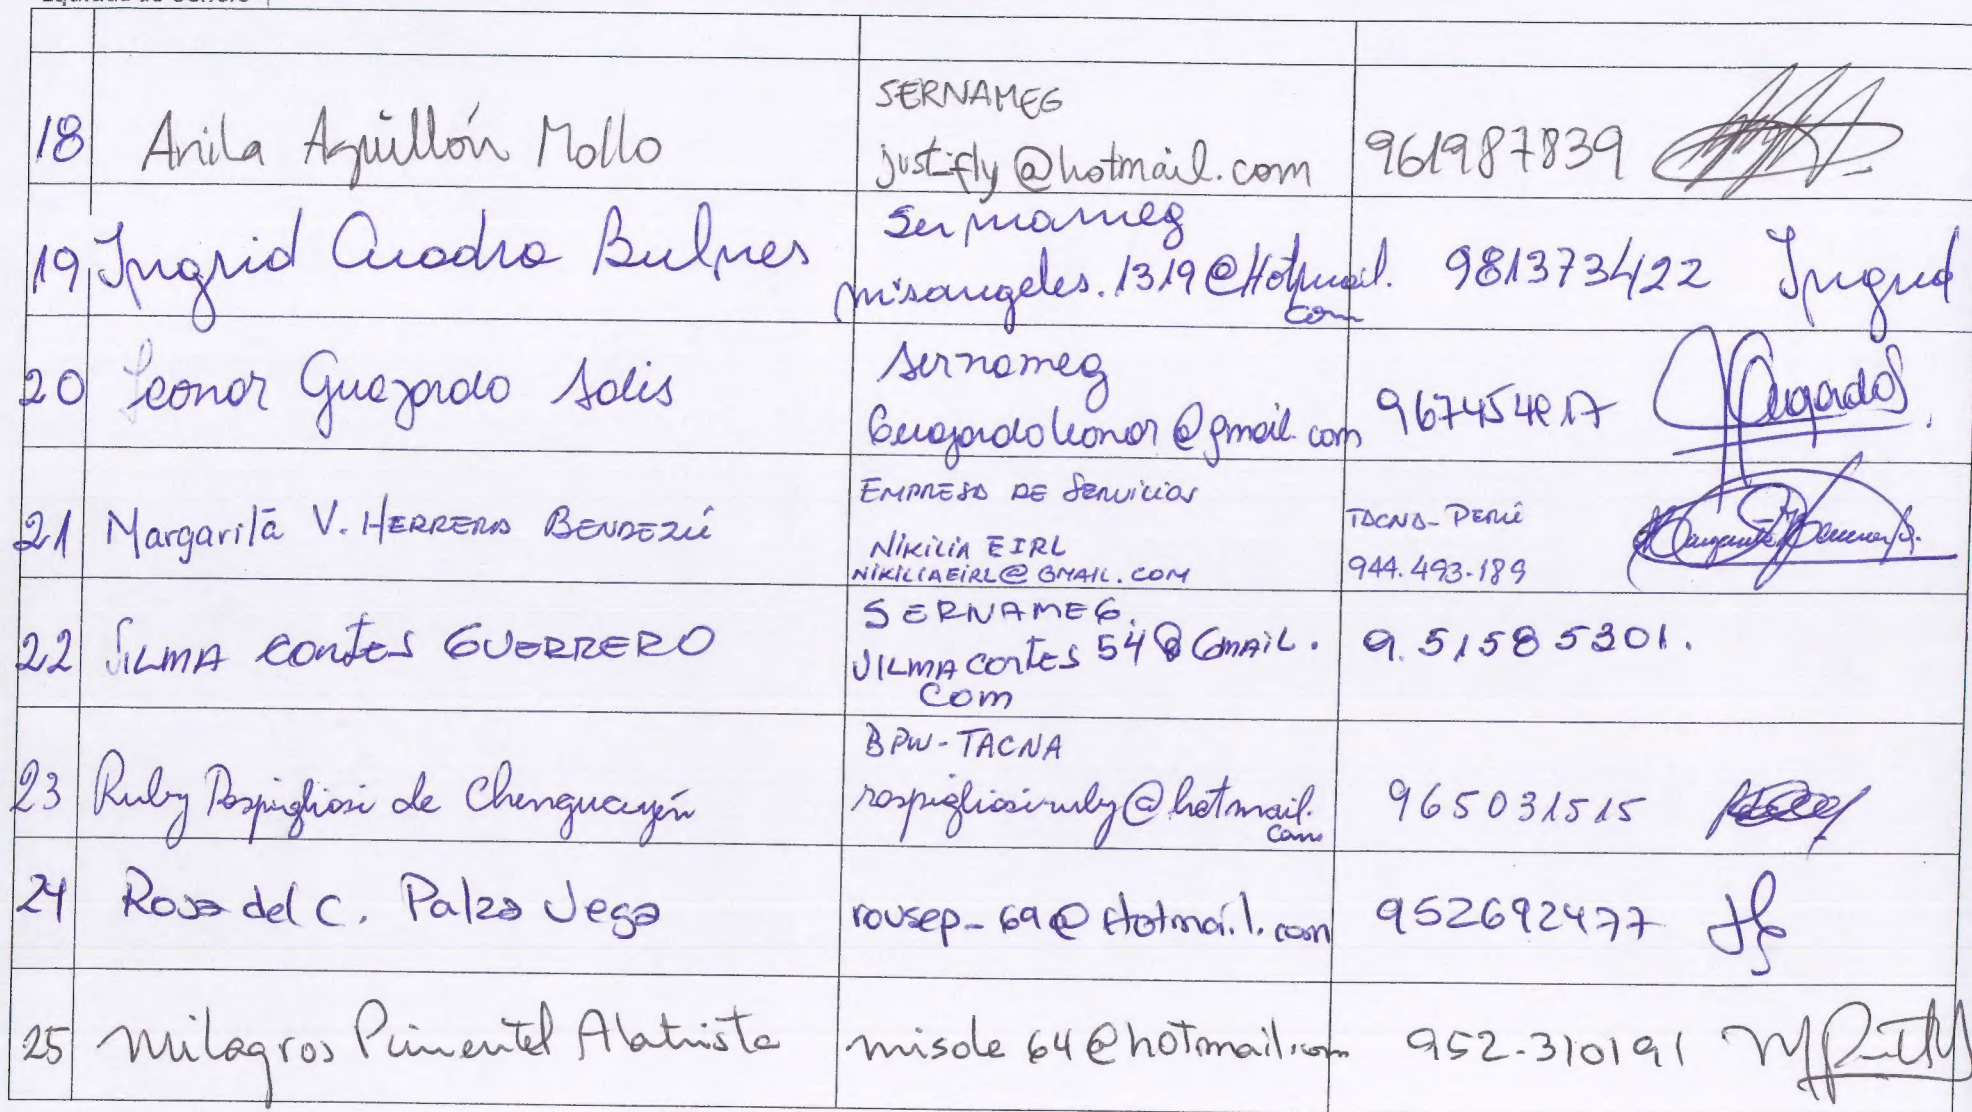 18 Anila Agüillón Mollo SERNAMEG
justifly@hotmail.com 961987839
19 Ingrid Cuadra Bulnes Sernameg
misangeles.1319@Hotmail.com 981373422 Ingrid
20 Leonor Guajardo Solis Sernameg
Guajardoleonor@gmail.com
21 Margarita V. HERRERA BENDEZÚ EMPRESA DE Servicios
NIKILIA EIRL
NIKILIAEIRL@GMAIL.COM
TACNA-PERÚ
944.493.189
22 VILMA CORTES GUERRERO SERNAMEG.
VILMACORTES54@GMAIL.
Com
9.51585301.
23 Ruby Rospigliosi de Chenguayén BPW-TACNA
rospigliosiruby@hotmail.
com
965031515
24 Rosa del C. Palza Vega rousep_69@Hotmail.com 952692477
25 Milagros Pimentel Alatrista misole64@hotmail.com 952-310191